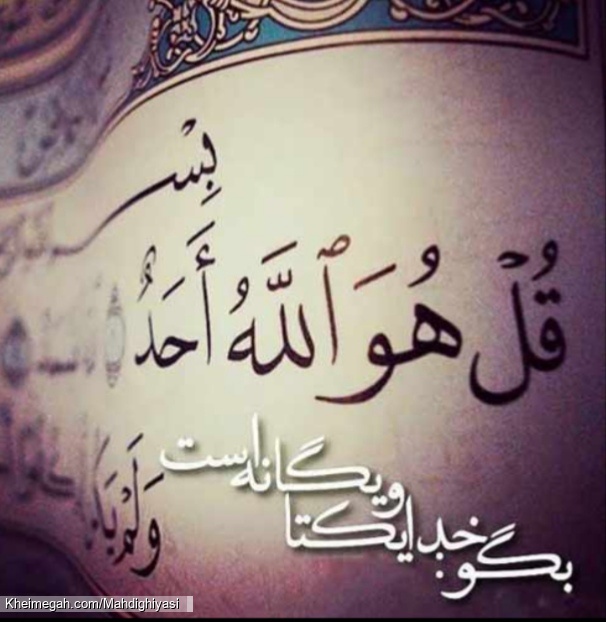 بِسْ
قُلْ هُوَ ٱللَّهُ أَحَدٌ
بگو: خدا یکتا
و یگانه است
وَلَمْ
Kheimegah.com/Mahdighiyasi